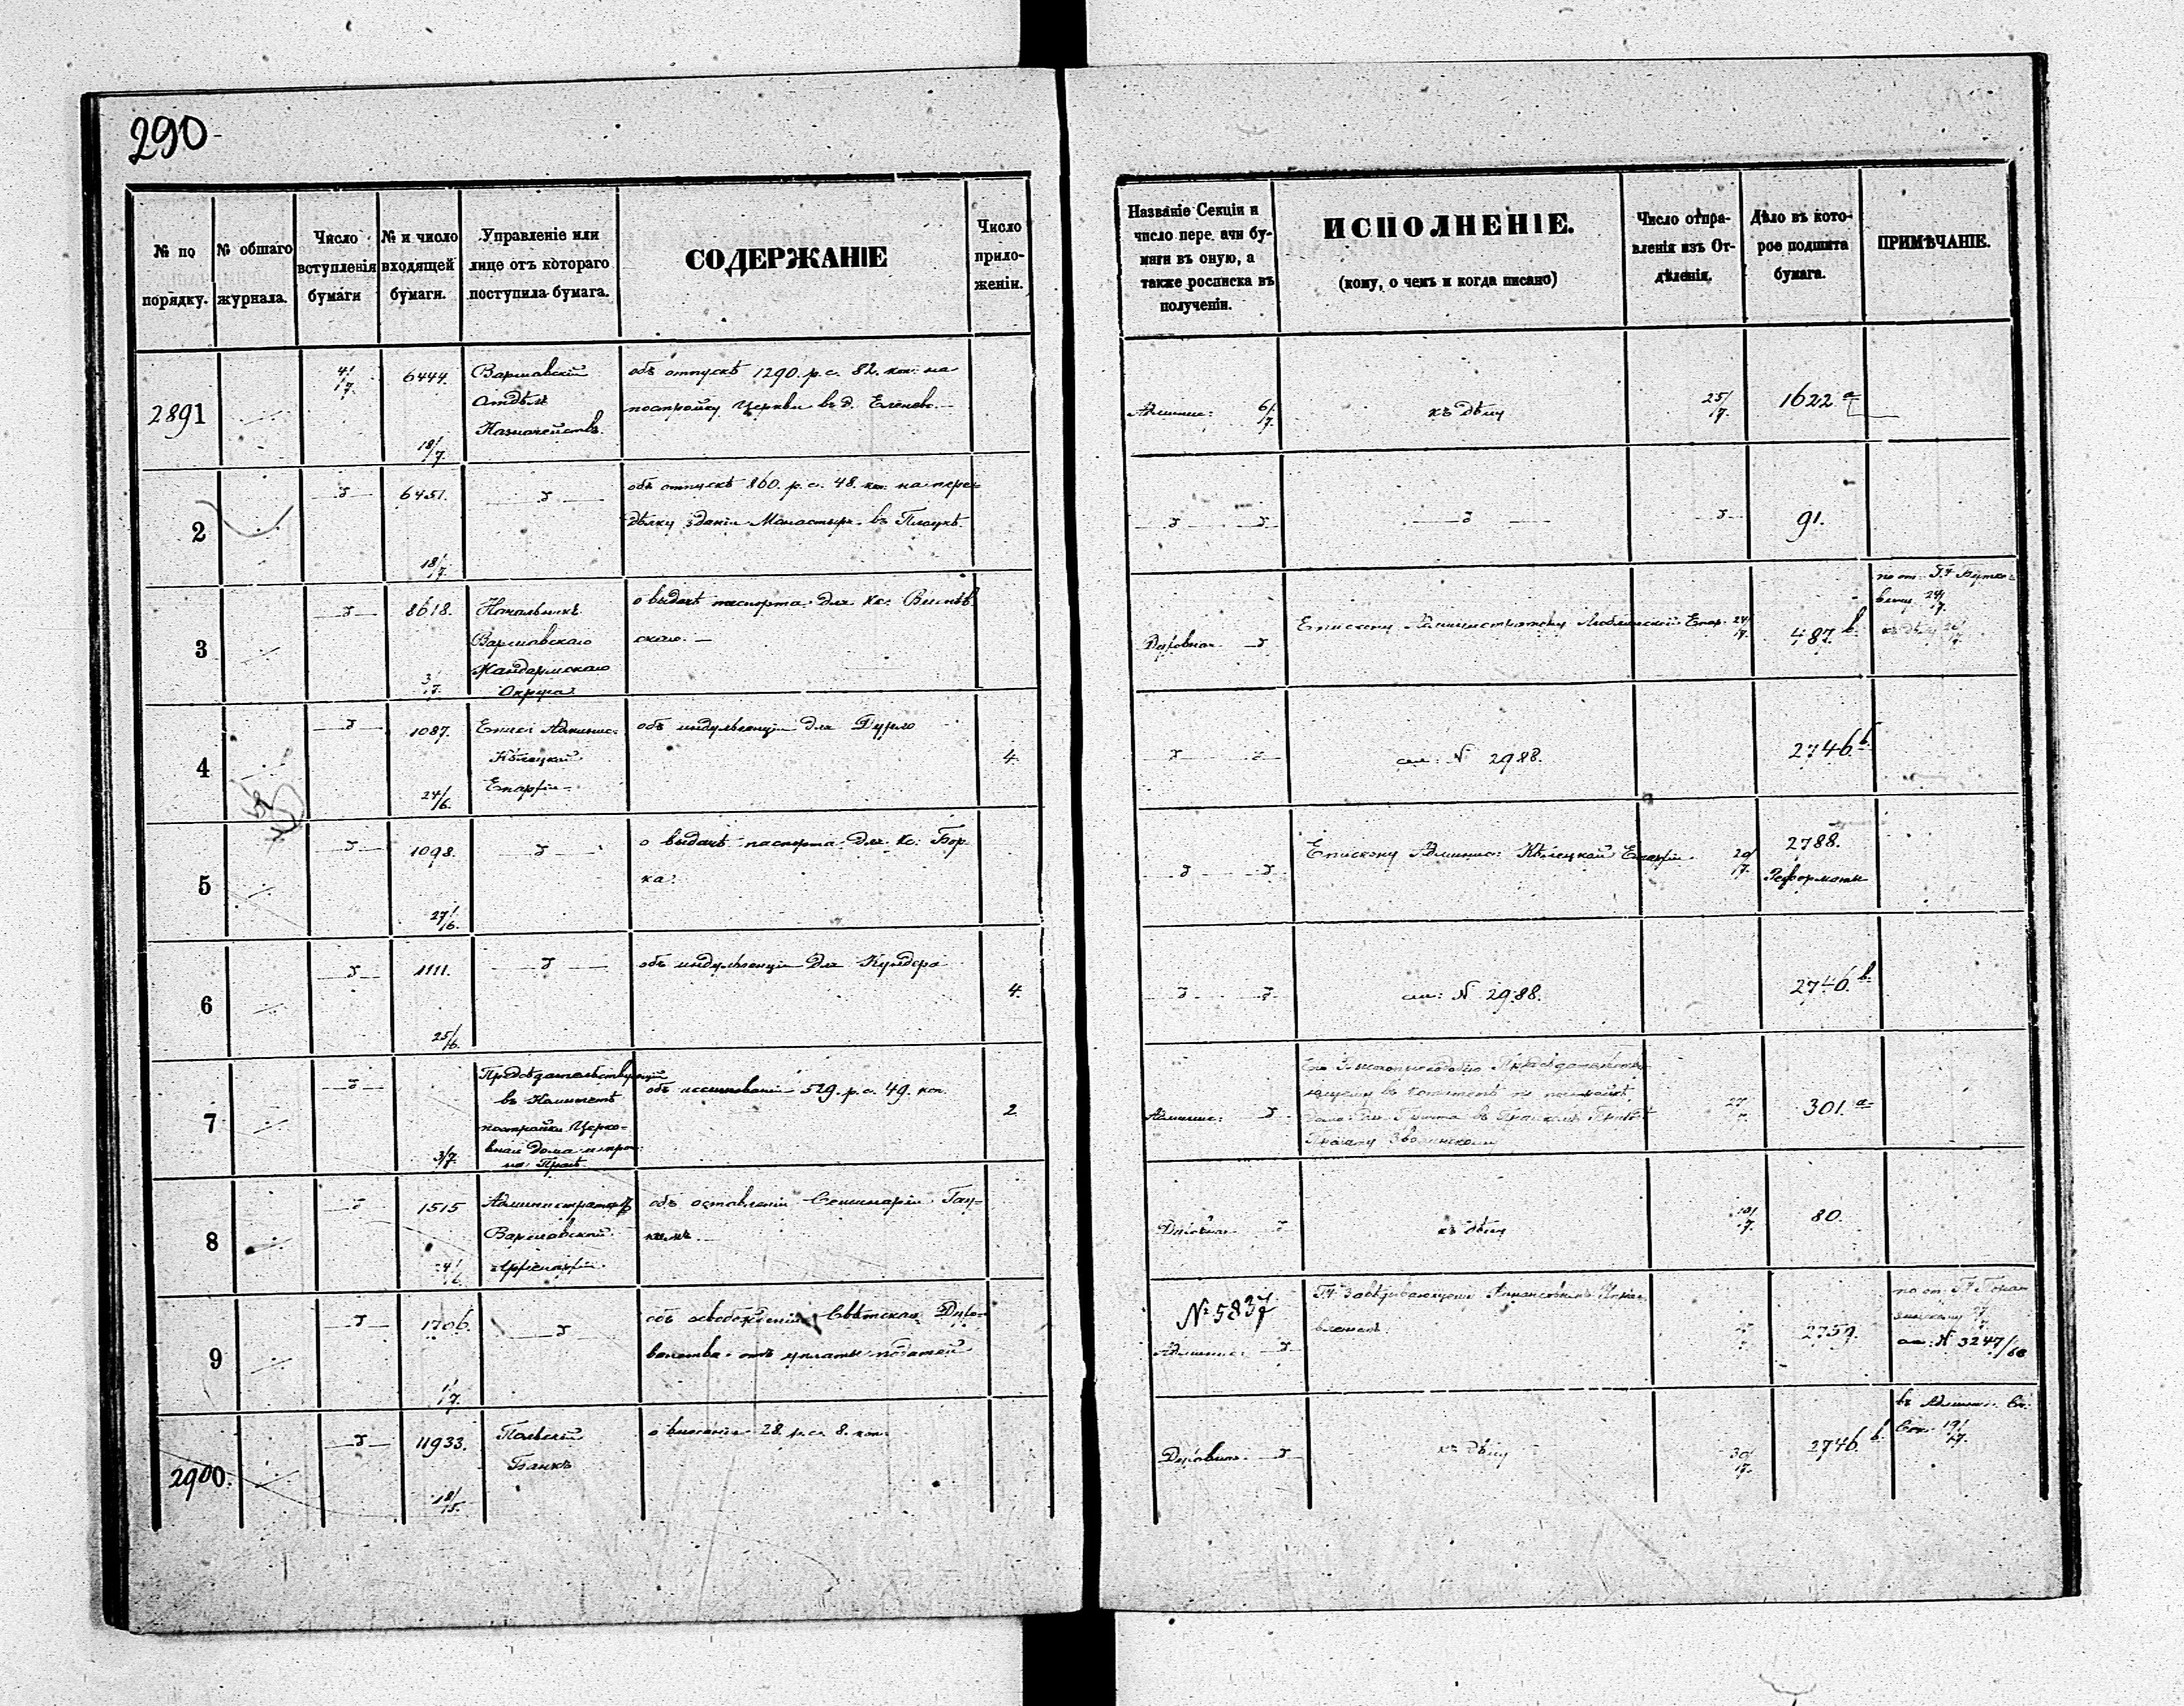 290
№ по порядку.
№ общаго журнала.
Число вступленія бумаги
№ и число входящей бумаги.
Управленіе или лице отъ котораго поступила бумага.
СОДЕРЖАНІЕ
Число приложеніи.
Названіе Секціи и число передачи бумаги въ оную, а также росписка въ полученіи.
ИСПОЛНЕНІЕ.
(кому, о чемъ и когда писано)
Число отправленія изъ Отдѣленія.
Дѣло въ которое подшита бумага.
ПРИМѢЧАНІЕ.
2891
4/7.
6444.
18/7.
Варшавскій
Отдѣлъ
Казначействъ.
объ отпускѣ 1290. р. с. 82. коп: на
постройку Церкви въ д.
Админис: 6/7.
къ дѣлу
25/7.
1622 a
2
6451.
18/7.
объ отпускѣ 860. р. с. 48. коп: на пере-
дѣлку зданія Монастыр. въ Плоцкѣ.
91.
3
8618.
3/7.
Начальникъ
Варшавскаго
Жандармскаго
Округа
о выдачѣ паспорта для Кс:
скаго. —
Духовная
Епископу Администратору Люблинской Епар. 24/7.
487 b.
по от.
24/7.
къ дѣлу
4
1087.
24/6.
Епис: Админис:
Кѣлецкой
Епархіи
объ индульгенціи для
4.
см: N 2988.
2746 b.
5
1098.
27/6.
о выдачѣ паспорта для Кс: Бор-
ка.
Епископу Админис: Кѣлецкой Епархіи.
20/7.
2788.
Реформаты
6
1111.
25/6.
объ индульгенціи для Кундера
4.
см: N 2988.
2746 b.
7
3/7.
Предсѣдательствующій
въ Комитетѣ
постройки Церко-
внаго дома
на Прагѣ
объ ассигнованіи 529. р. с. 49. коп.
2.
Админис:
въ Комитетѣ по постройкѣ
дома для
27/7.
301. a
8
1515
24/6
Администраторъ
Варшавской
Архіепархіи.
объ оставленіи Семинаріи
Духовная
къ дѣлу
19/7.
80.
9
1706.
1/7.
объ освобожденіи Свѣтскаго Духо-
венства отъ уплаты податей
№ 5837
Админис:
Гл: Завѣдывающему Финансовымъ Управ-
леніемъ.
2759.
по от.
см: N 3247/66
2900.
11933.
18/15.
Польскій
Банкъ
о внесеніи 28. р. с. 8. коп.
Духовная.
къ дѣлу
30/7.
2746 b.
въ Админис: Ск:
19/7.